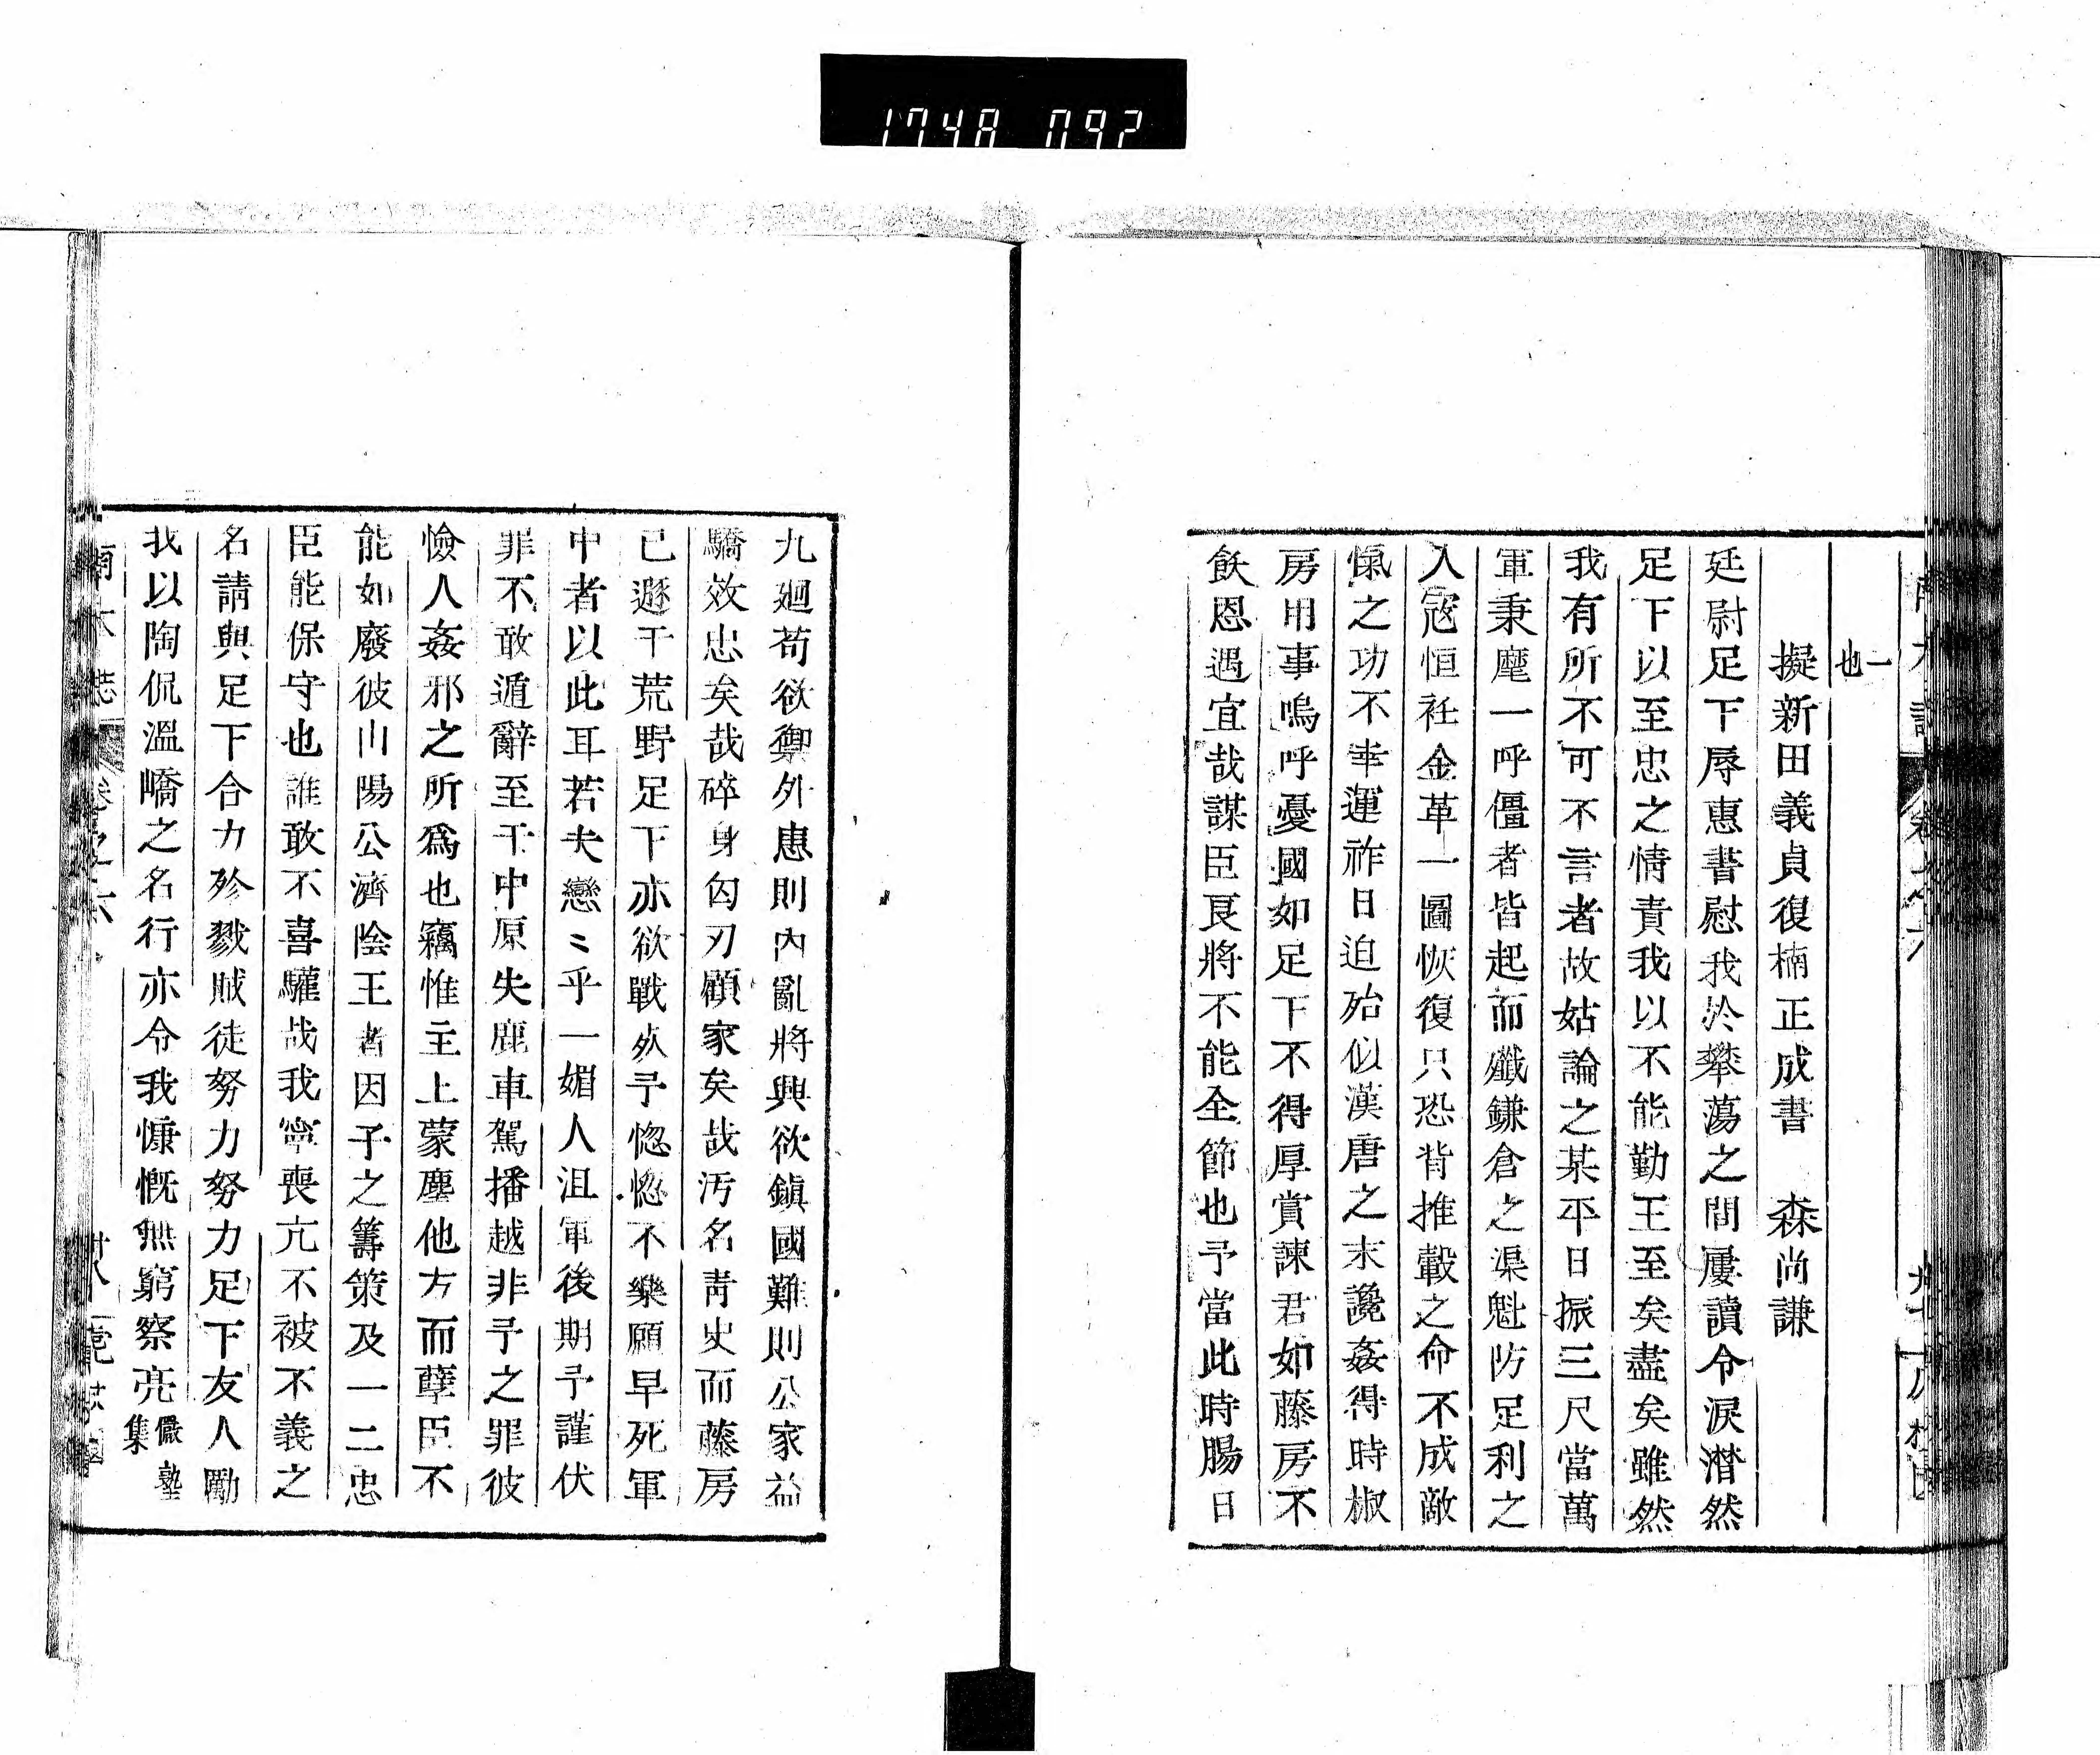 1748 092
一
也
擬新田義貞復楠正成書　森尚謙
廷尉足下辱惠書慰我於攀蕩之間屢讀令淚潸然
足下以至忠之情責我以不能勤王至矣盡矣雖然
我有所不可不言者故姑論之某平日振三尺當萬
軍秉麾一呼僵者皆起而殲鎌倉之渠魁防足利之
入寇恒衽金革一圖恢復只恐背推轂之命不成敵
愾之功不幸運祚日迫殆似漢唐之末讒姦得時椒
房用事嗚呼憂國如足下不得厚賞諫君如藤房不
飮恩遇宜哉謀臣良將不能全節也予當此時腸日
九廻苟欲禦外患則內亂將興欲鎭國難則公家益
驕效忠矣哉碎身匈刃顧家矣哉汚名靑史而藤房
已遯于荒野足下亦欲戰死予惚惚不樂願早死軍
中者以此耳若夫戀〻乎一媚人沮軍後期予謹伏
罪不敢遁辭至于中原失鹿車駕播越非予之罪彼
憸人姦邪之所爲也竊惟主上蒙塵他方而孽臣不
能如廢彼山陽公濟陰王者因予之籌策及一二忠
臣能保守也誰敢不喜驩哉我寧喪亢不被不義之
名請與足下合力殄戮賊徒努力努力足下友人勵
我以陶侃溫嶠之名行亦令我慷慨無窮察亮 儼塾
集